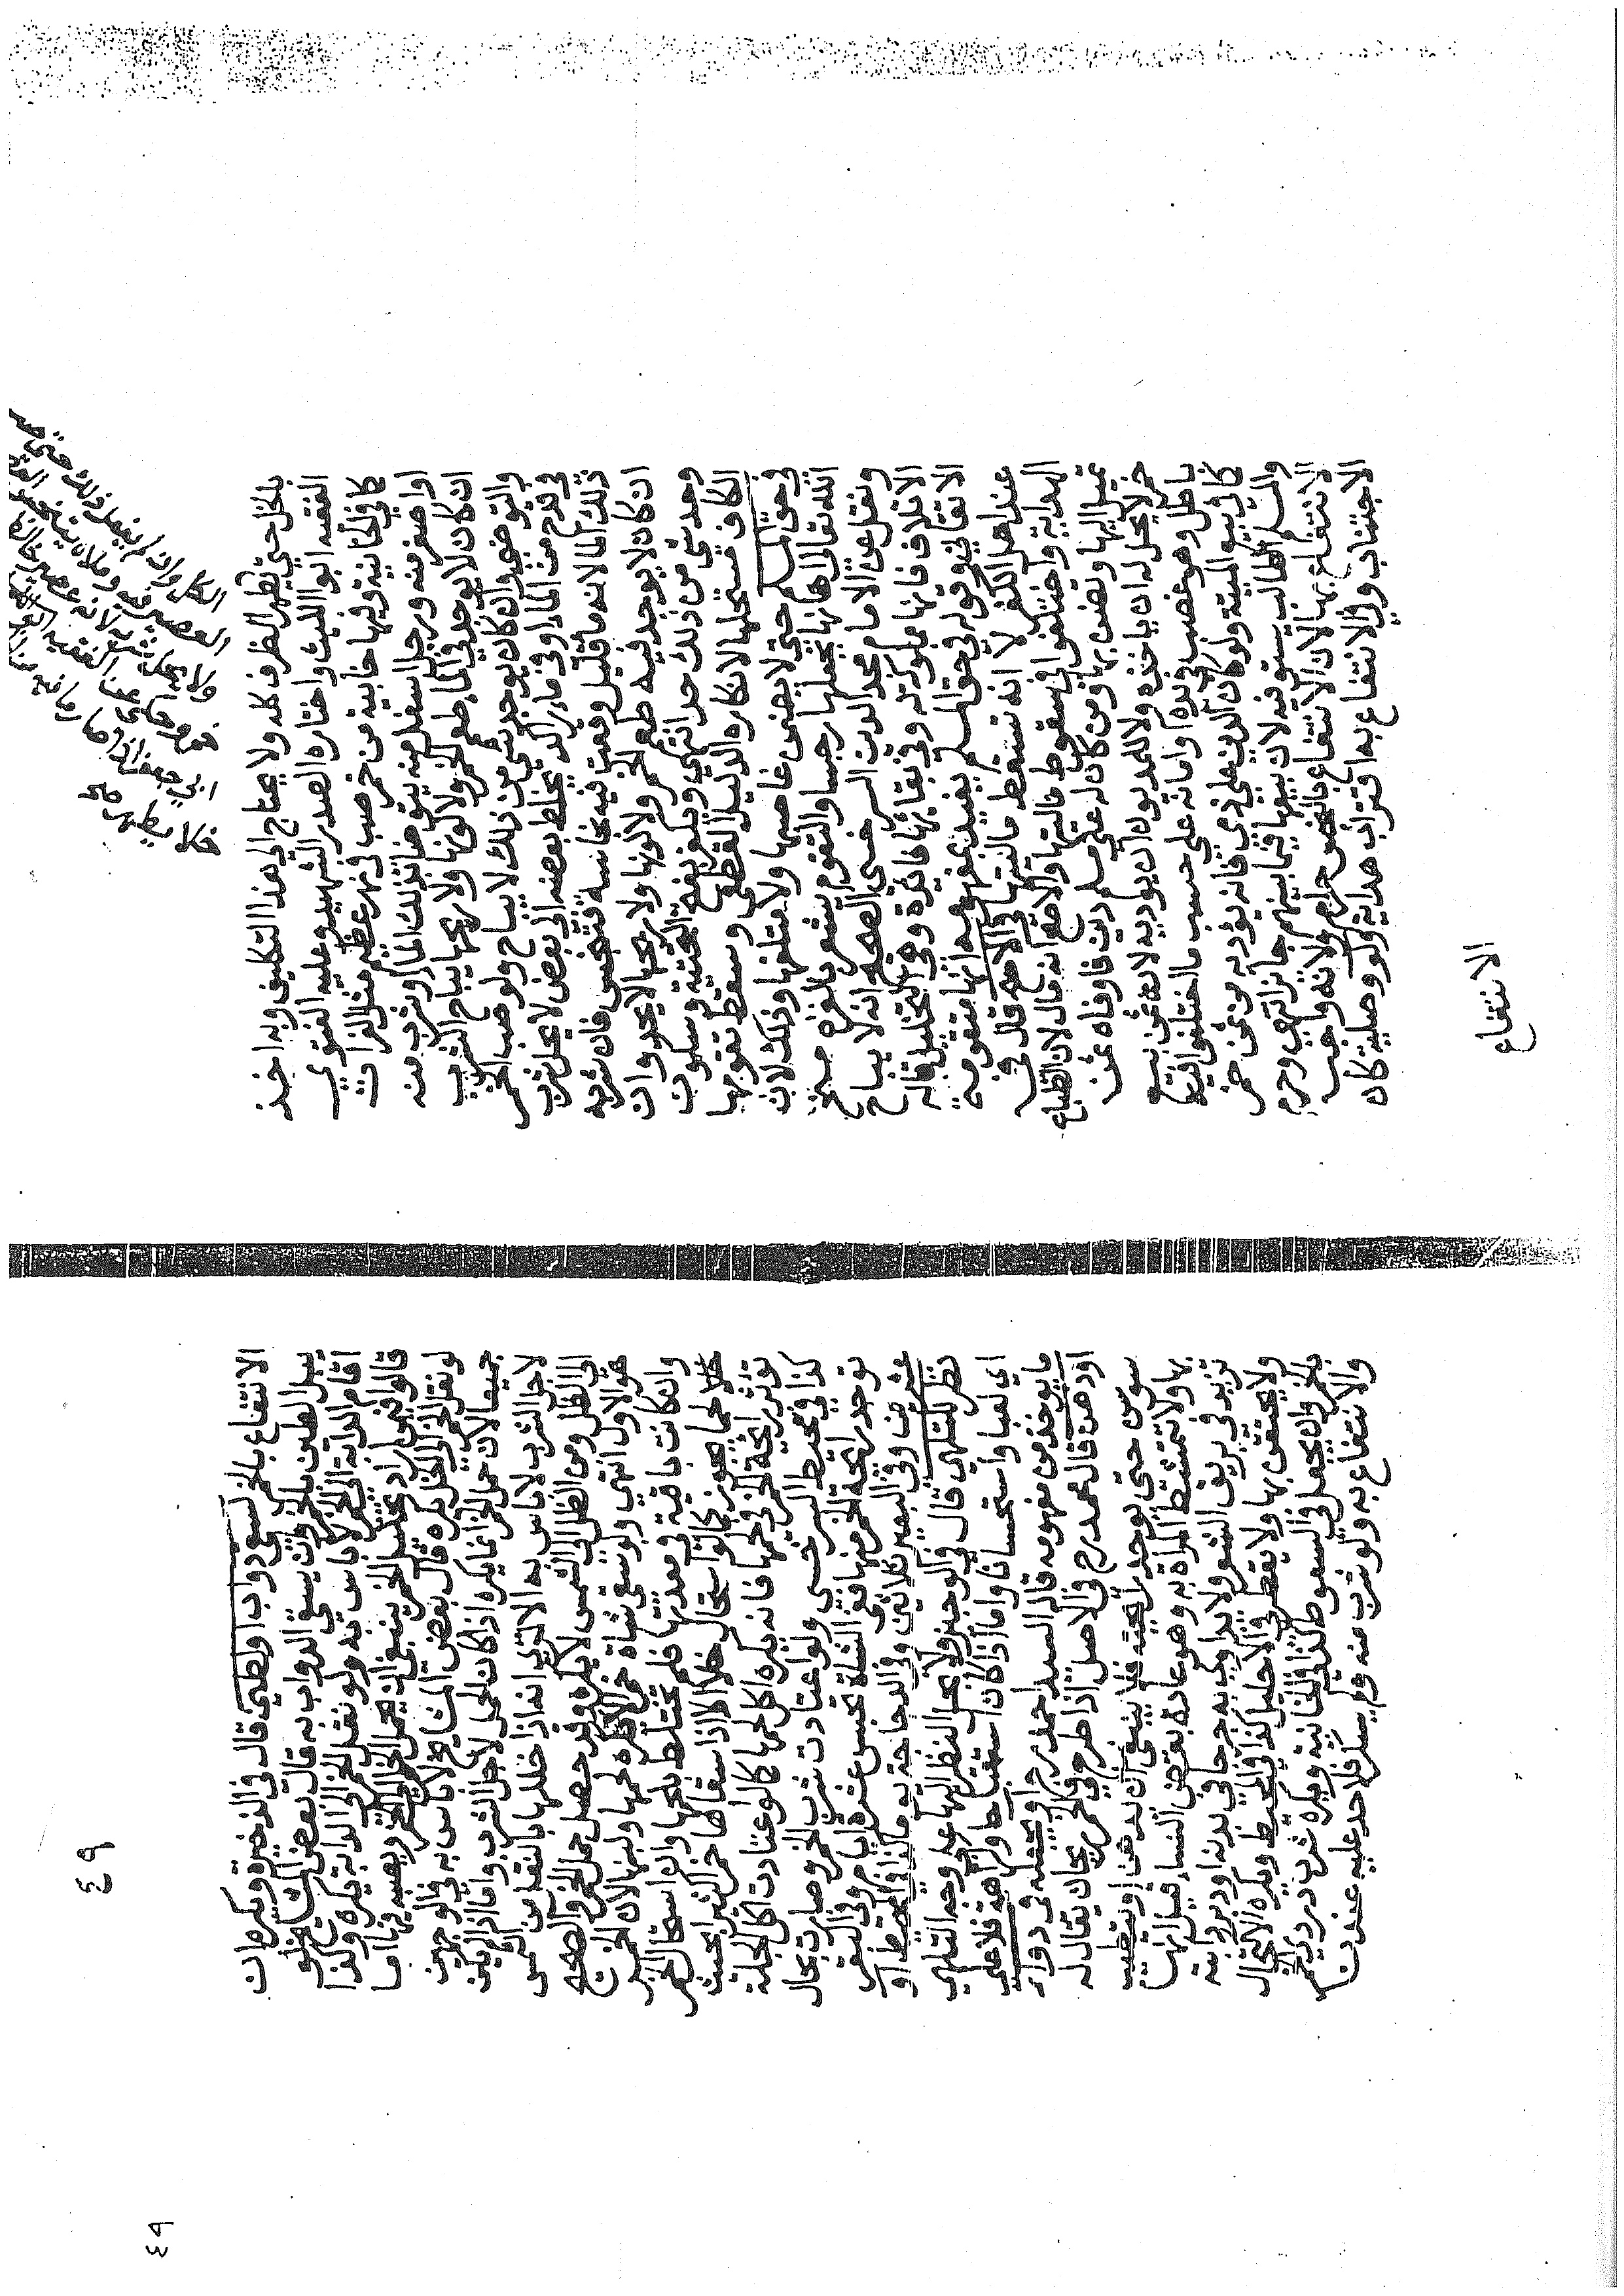 بالخل حتى يطهر الظرف كله ولا يحتاج الى هذا التكليف وبه اخذ
الفقيه ابو الليث واختاره الصدر الشهيد وعليه الفتوى
كما في الخانية وفيها خابية من خمر صب في نهر عظيم مثل الفرات
او اصغر منه ورجل اسفل منه يتوضا بذلك الماء او شرب منه
ان كان لا يوجد في الماء طعم الخمر ولا لونها ولا ريحها يباح الشرب
والتوضي وان كان يوجد شي من ذلك لا يباح ولو صب الخمر
في قدح من الماء او في ماء راكد يخلط بعضه الى بعض لا يحل شرب
ذلك الماء لانه ماء قليل وقعت فيه نجاسة فتنجس فان شربه
ان كان لا يوجد فيه طعم الخمر ولا لونها ولا ريحها لا يحد وان
وجد شي من ذلك حد انتهى ويكفر بفتح التحتية وسكون
الكاف مستحلها لانكاره الدليل القطعي وسقط تقومها
في حق المسلم حتى لا يضمن غاصبها ولا متلفها وذلك لان
الله تعالى اهانها بجعلها رجسا والتقوم يشعر بالعزة منح
ونقل عن الامام مجد الدين السرخسي الصحيح انه لا يباح
الاتلاف فانها مملوكة له وفي بقائها فائدة وهي التخليل قاله
الاتقاني وقوله في حق المسلم يفيد بمفهومه انها متقومة
عند اهل الكفر لا انه تسقط ماليتها في الاصح قال في
الهداية واختلفوا في سقوط ماليتها والاصح انه مال لان الطباع
تميل اليها وتضن بها ومن كان له على مسلم دين فاوفاه ثمن
خمر لا يحل له ان ياخذه ولا للمديون ان يوديه لانه ثمن بيع
باطل وهو غصب في يده او امانة على حسب ما اختلفوا فيه
كما في بيع الميتة ولو كان الدين على ذمي فانه يؤديه من ثمن خمر
والمسلم الطالب يستوفيه لان بيعها فيما بينهم جائز انتهى وحرم
الانتفاع بها لان الانتفاع بالنجس حرام ولانه واجب
الاجتناب وفي الانتفاع به اقتراب هداية ولو وصلية كان
الانتفاع
٤٩
الانتفاع بالخمر لسقي دواب او لطين قال في الذخيرة ويكره ان
يبل الطين بالخمر وان يسقي الدواب به قال بعض المشايخ لو
اقام الدابة الى الخمر لا باس به ولو نقل الخمر الى الدابة يكره وكذا
قالوا فيمن اراد تخليل الخمر ينبغي ان يحمل الخل الى الخمر ويصبه فيها اما
لو نقل الخمر الى الخل يكره قال بعض المشايخ لا باس به في الوجهين
جميعا لان حمل الخمر انما يكره اذا كان الحمل لاجل الشرب واما اذا لم يكن
لاجل الشرب لا باس به الا ترى انه اذا خللها بالنقل من الشمس
الى الظل ومن الظل الى الشمس لا يكره وقد حصل حمل الخمر والصحيح
هو الاول انتهى ولو سقى شاة خمرا لا يكره لحمها ولبنها لان الخمر
وان كانت باقية في معدتها فلم تختلط بلحمها وان استحال الخمر
لحما يجوز كما لو استحال خلا الا اذا سقاها خمرا كثيرا بحيث
تؤثر رائحة الخمر في لحمها فانه يكره اكل لحمها كما لو اعتادت اكل الجلة
كذا في محيط السرخسي ولو اعتادت شرب الخمر وصارت بحال
توجد رائحة الخمر منها ففي الشاة تحبس عشرة ايام وفي البقر
عشرين وفي البعير ثلاثين وفي الدجاجة يوما كذا في المحيط او
نظر للتلهي قال في الوجيز ولا يحل النظر اليها على وجه التلهي
اي لعبا واستحسانا واما اذا كان استقباحا وكراهة فلا على
ما يوخذ من مفهومه قاله السيد احمد رح او يجعله في دواء
او دهن قال محمد رح في الاصل اذا طرح في الخمر ريحان يقال له
سوسن حتى يوجد رائحته فلا ينبغي ان يدهن او يتطيب
بها ولا تمتشط المراة به وهو عادة بعض النساء قيل انها
تزيد في بريق الشعر ولا يداوي به جرحا في بدنه او دبر دابته
ولا يحتقن بها ولا يقطر في الاحليل كذا في المحيط ويكره الاكتحال
بالخمر وان يجعل في السعوط كذا في الخانية ويكره شرب دردي الخمر
والانتفاع به ولو شرب منه ولم يسكر فلا حد عليه عندنا
٤٩